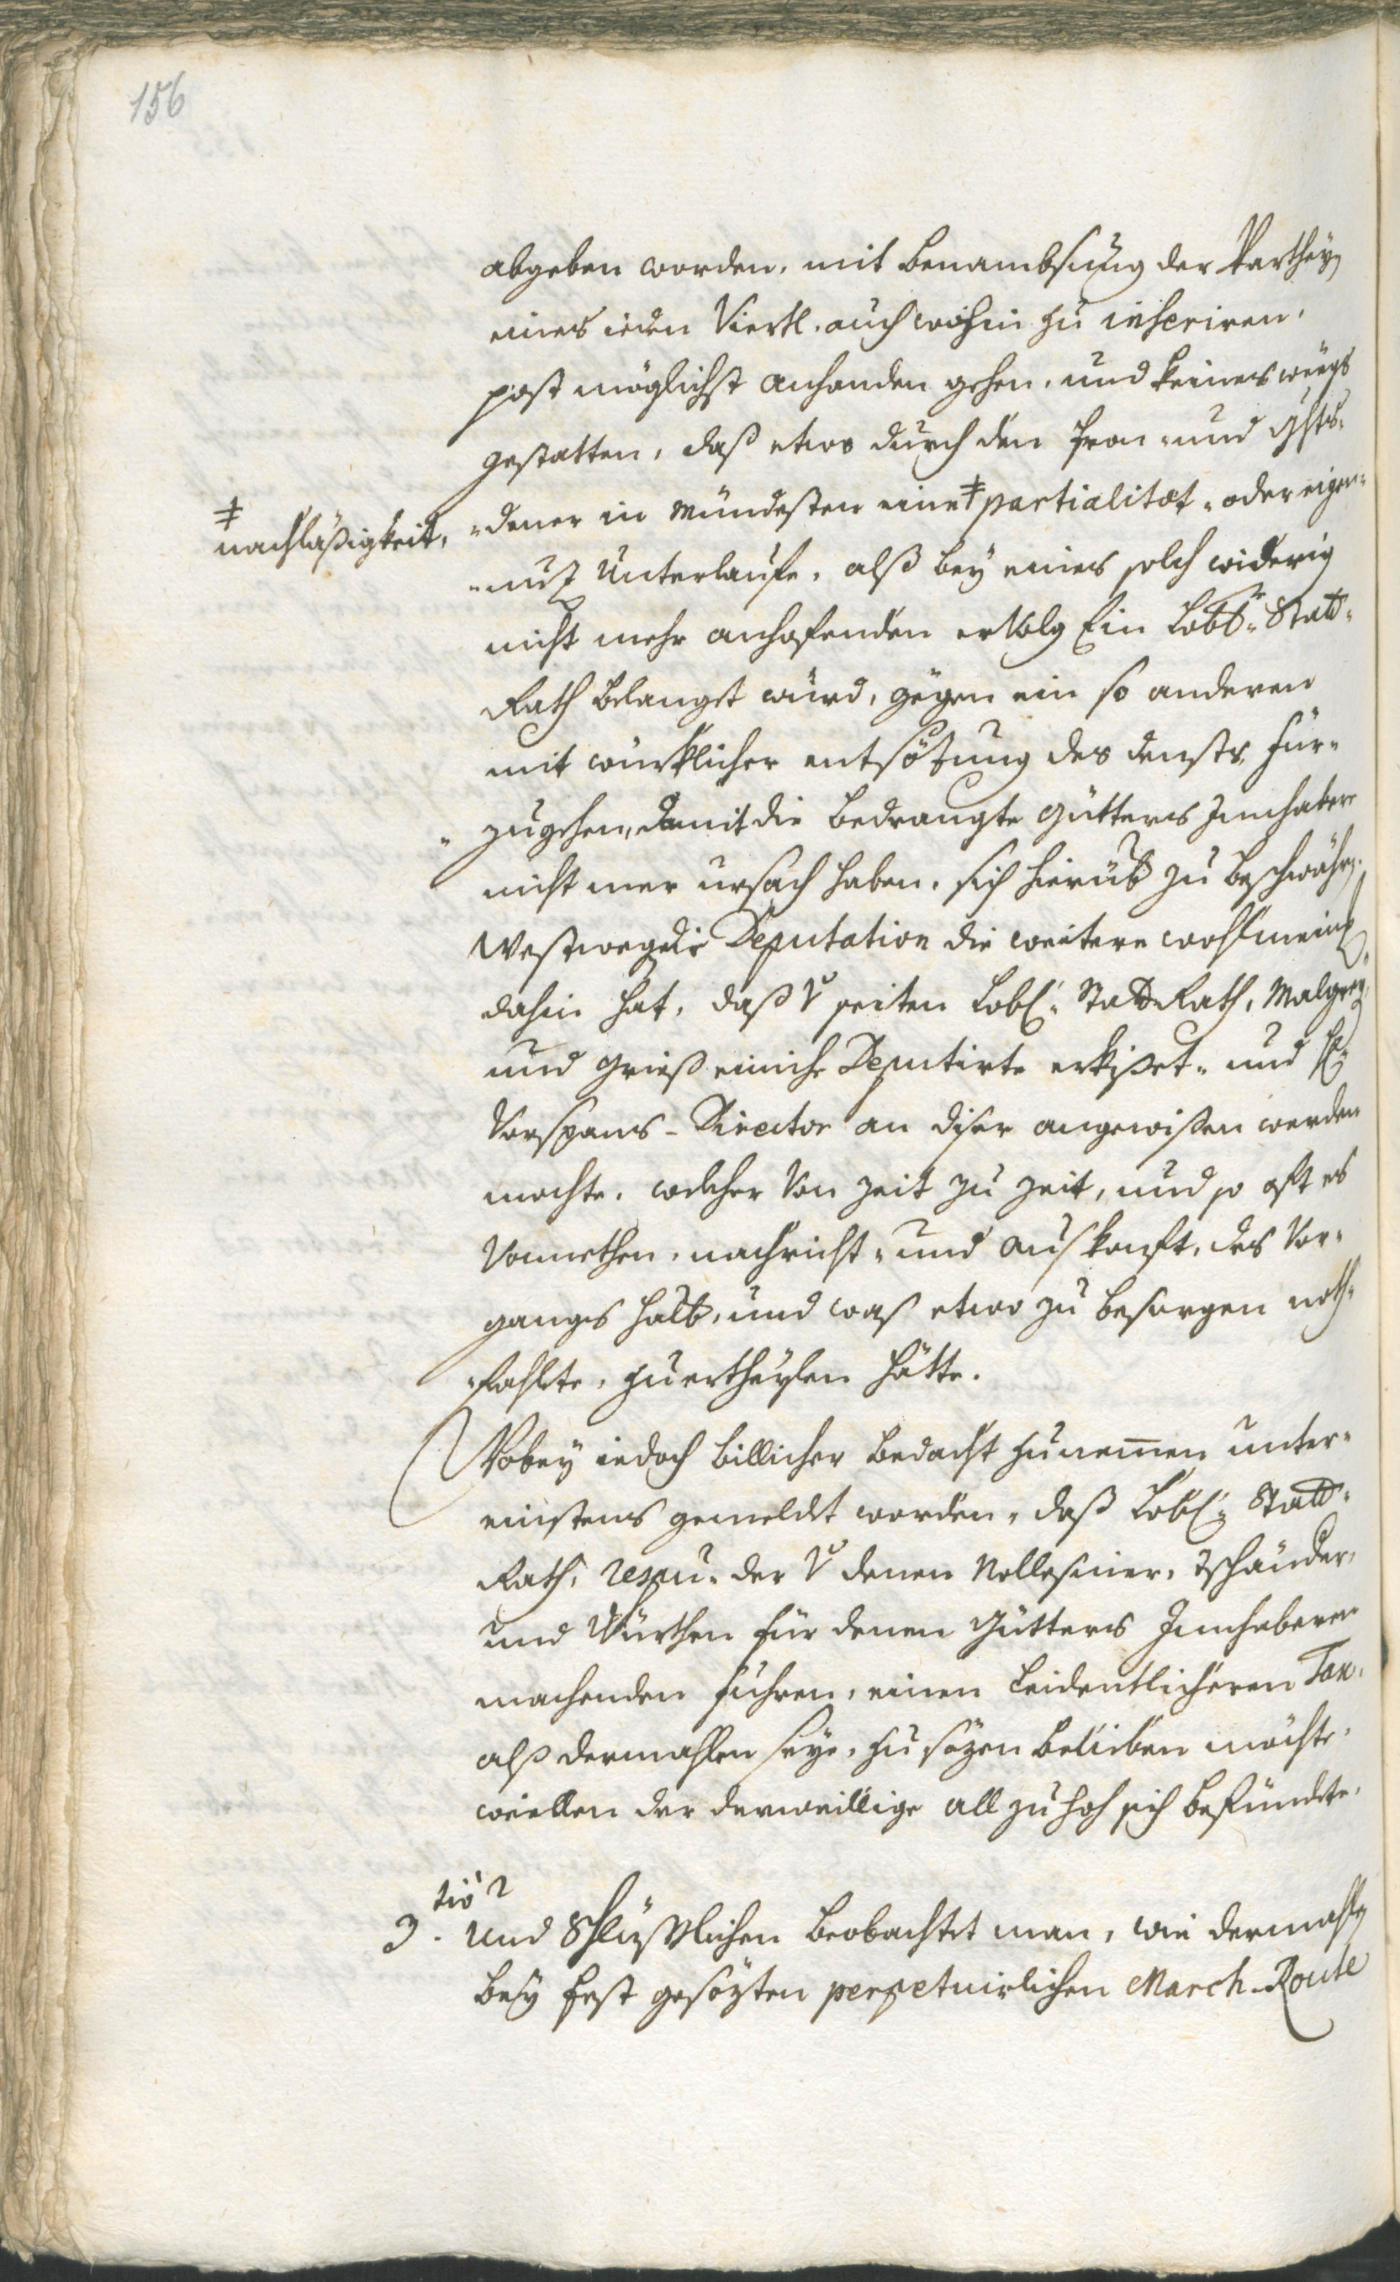 156
abgeben worden, mit benambsung der Partheÿ
eines ieden Viertl, auch wohin zu inscriren,
post möglichst anhanden gehen, und keines weegs
gestatten, daß etwo durch den fron- und Ghts-
‡
nachläßigkeit,
-dener in mündesten eine ‡ partialitæt- oder eigen-
-nuz unterlauffe, alß beÿ eines solch widerig
nicht mehr anhofenden erfolg Ein Lobl: Statt-
Rath belangt würd, gegen ein so anderen
mit würklicher entsözung des densts, für-
zugehen, damit die bedrangte Güetters Innhabere
nicht mer ursach haben, sich hierüb zu beschwähr.
Westwegen die Deputation die weitere wohlmeing
dahin hat, daß v seiten Lobl: Statt-Rath, Malgreÿ
und Grieß einiche Deputirte erkißet- und H:
Vorspans-Director an diser angewisen werden
mochte, welcher von zeit zu zeit, und so oft es
Vonnethen, nachricht- und auskonft, des Vor-
gangs halb, und was etwo zu besorgen noth-
-fahlete, zu ertheÿlen hätte.
Wobeÿ iedoch billicher bedacht zu nem̄en unter-
einstens gemeldt worden, daß Lobl: Statt-
Rath, respu: der v denen Nollesiner, Tschänder,
und Würthen für denen Güetters Innhaberen
machenden fuhren, einen leidentlicheren Tax,
alß dermahlen seÿe, zu sözen belieben möchte,
weillen der derweillige all zu hoch sich befündete.
3.tiò Und Schlüßlichen beobachtet man, wie dermahlen
beÿ fest gesözten perpetuirlichen March-Route